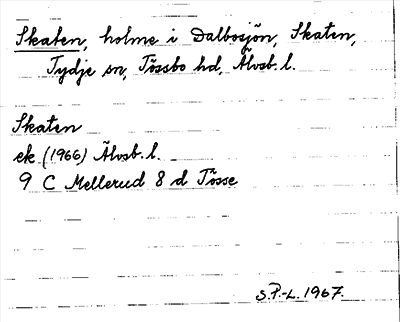 Skaten, holme i Dalbosjön, Skaten,
Tydje sn, Tössbo hd, Älvsb. l.
Skaten
ek (1966) Älvsb. l.
9 C Mellerud 8 d Tösse
S.P.-L. 1967.